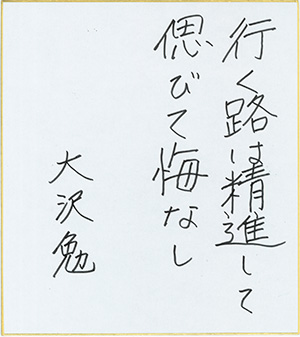 行く路は精進して
偲びて悔なし
大沢勉